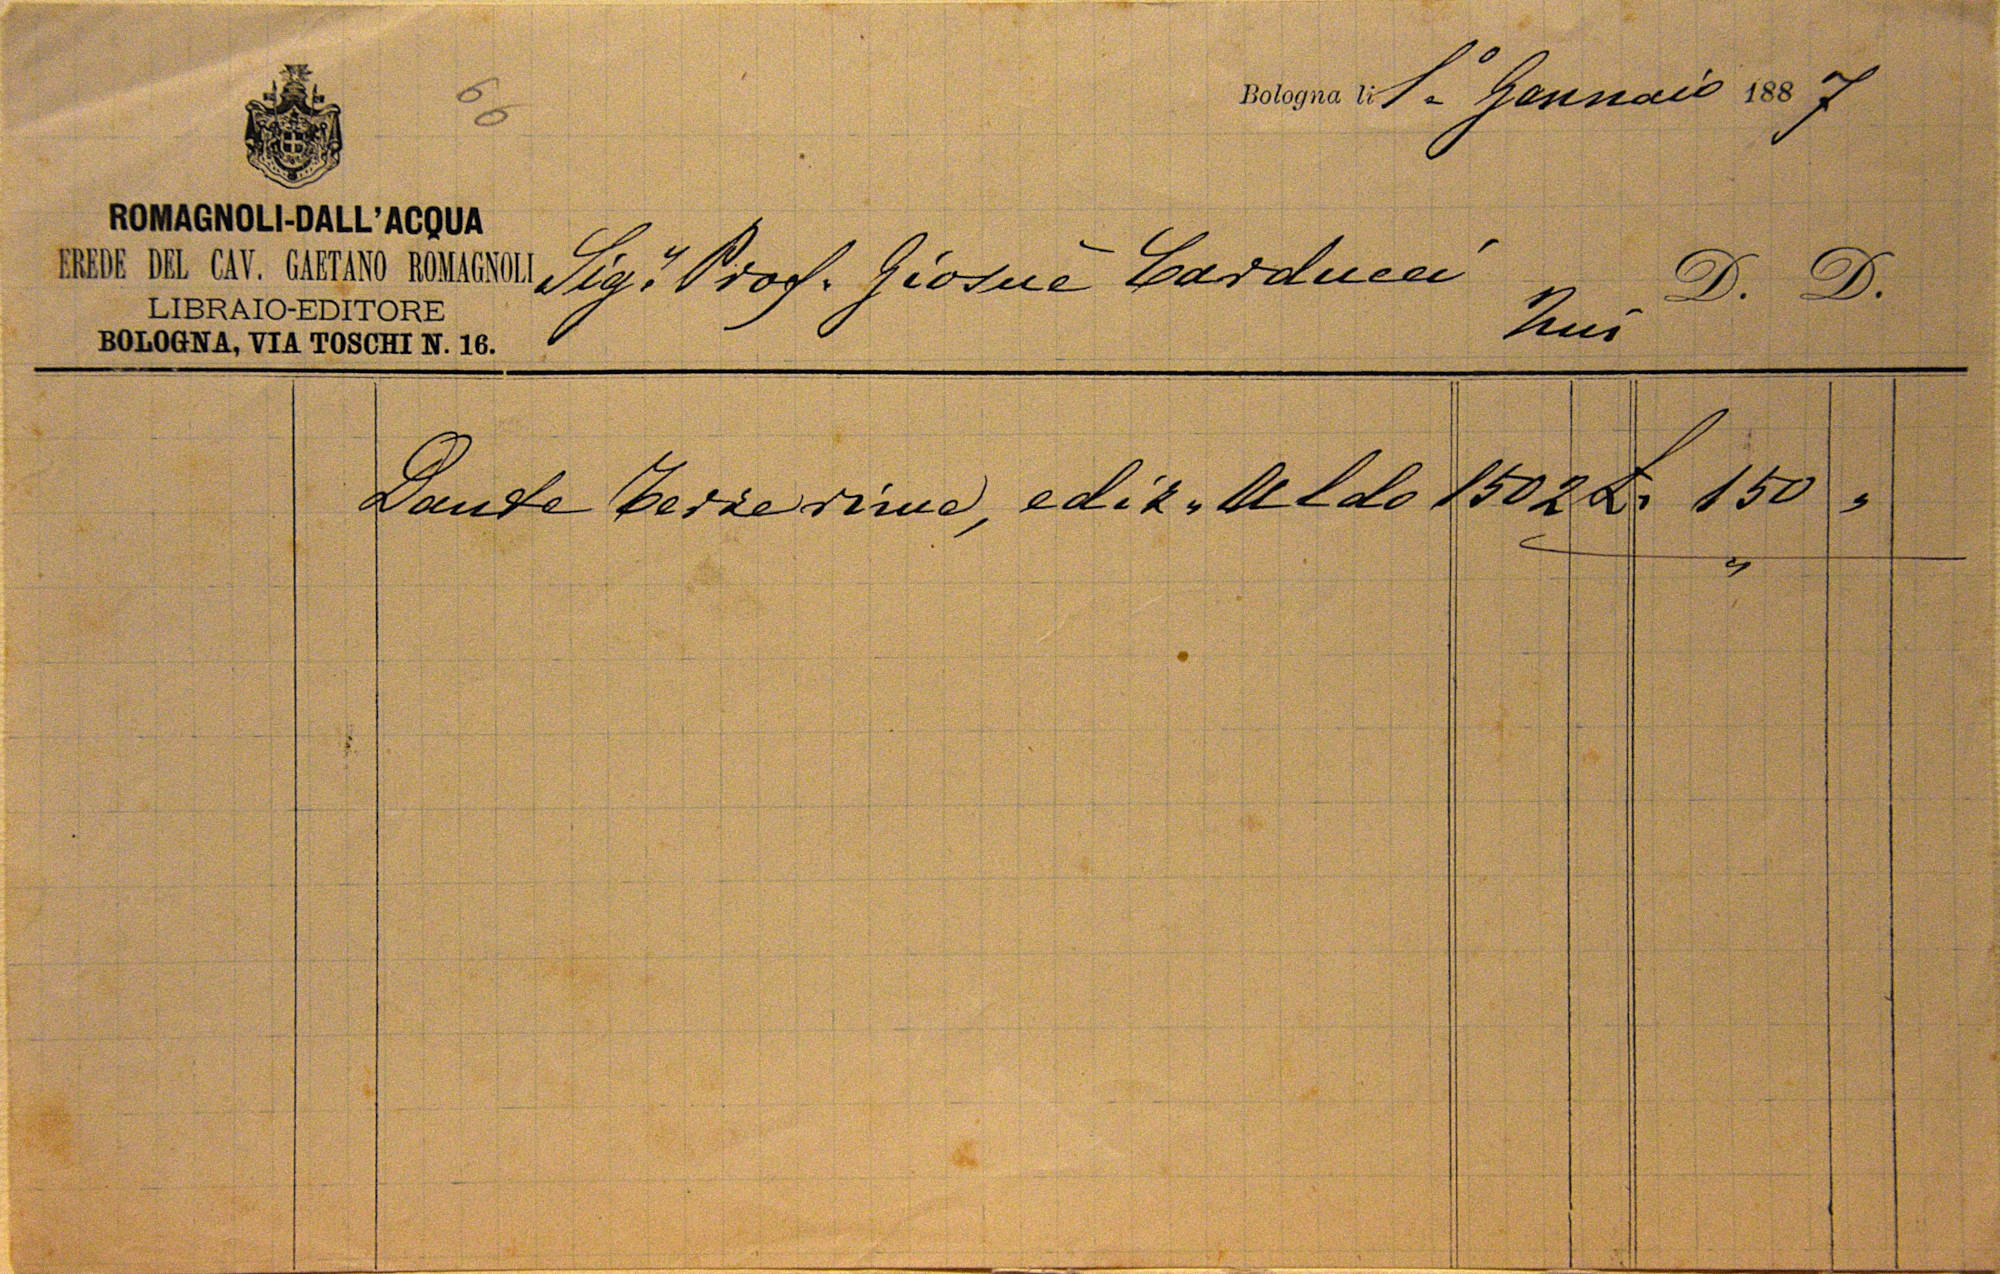 66
Bologna li 1° Gennaio 1887
ROMAGNOLI-DALL'ACQUA
EREDE DEL CAV. GAETANO ROMAGNOLI
LIBRAIO-EDITORE
BOLOGNA, VIA TOSCHI N. 16.
Sig.r Prof. Giosuè Carducci D. D.
Dante Terze rime, ediz. Aldo 1502 L. 150 "